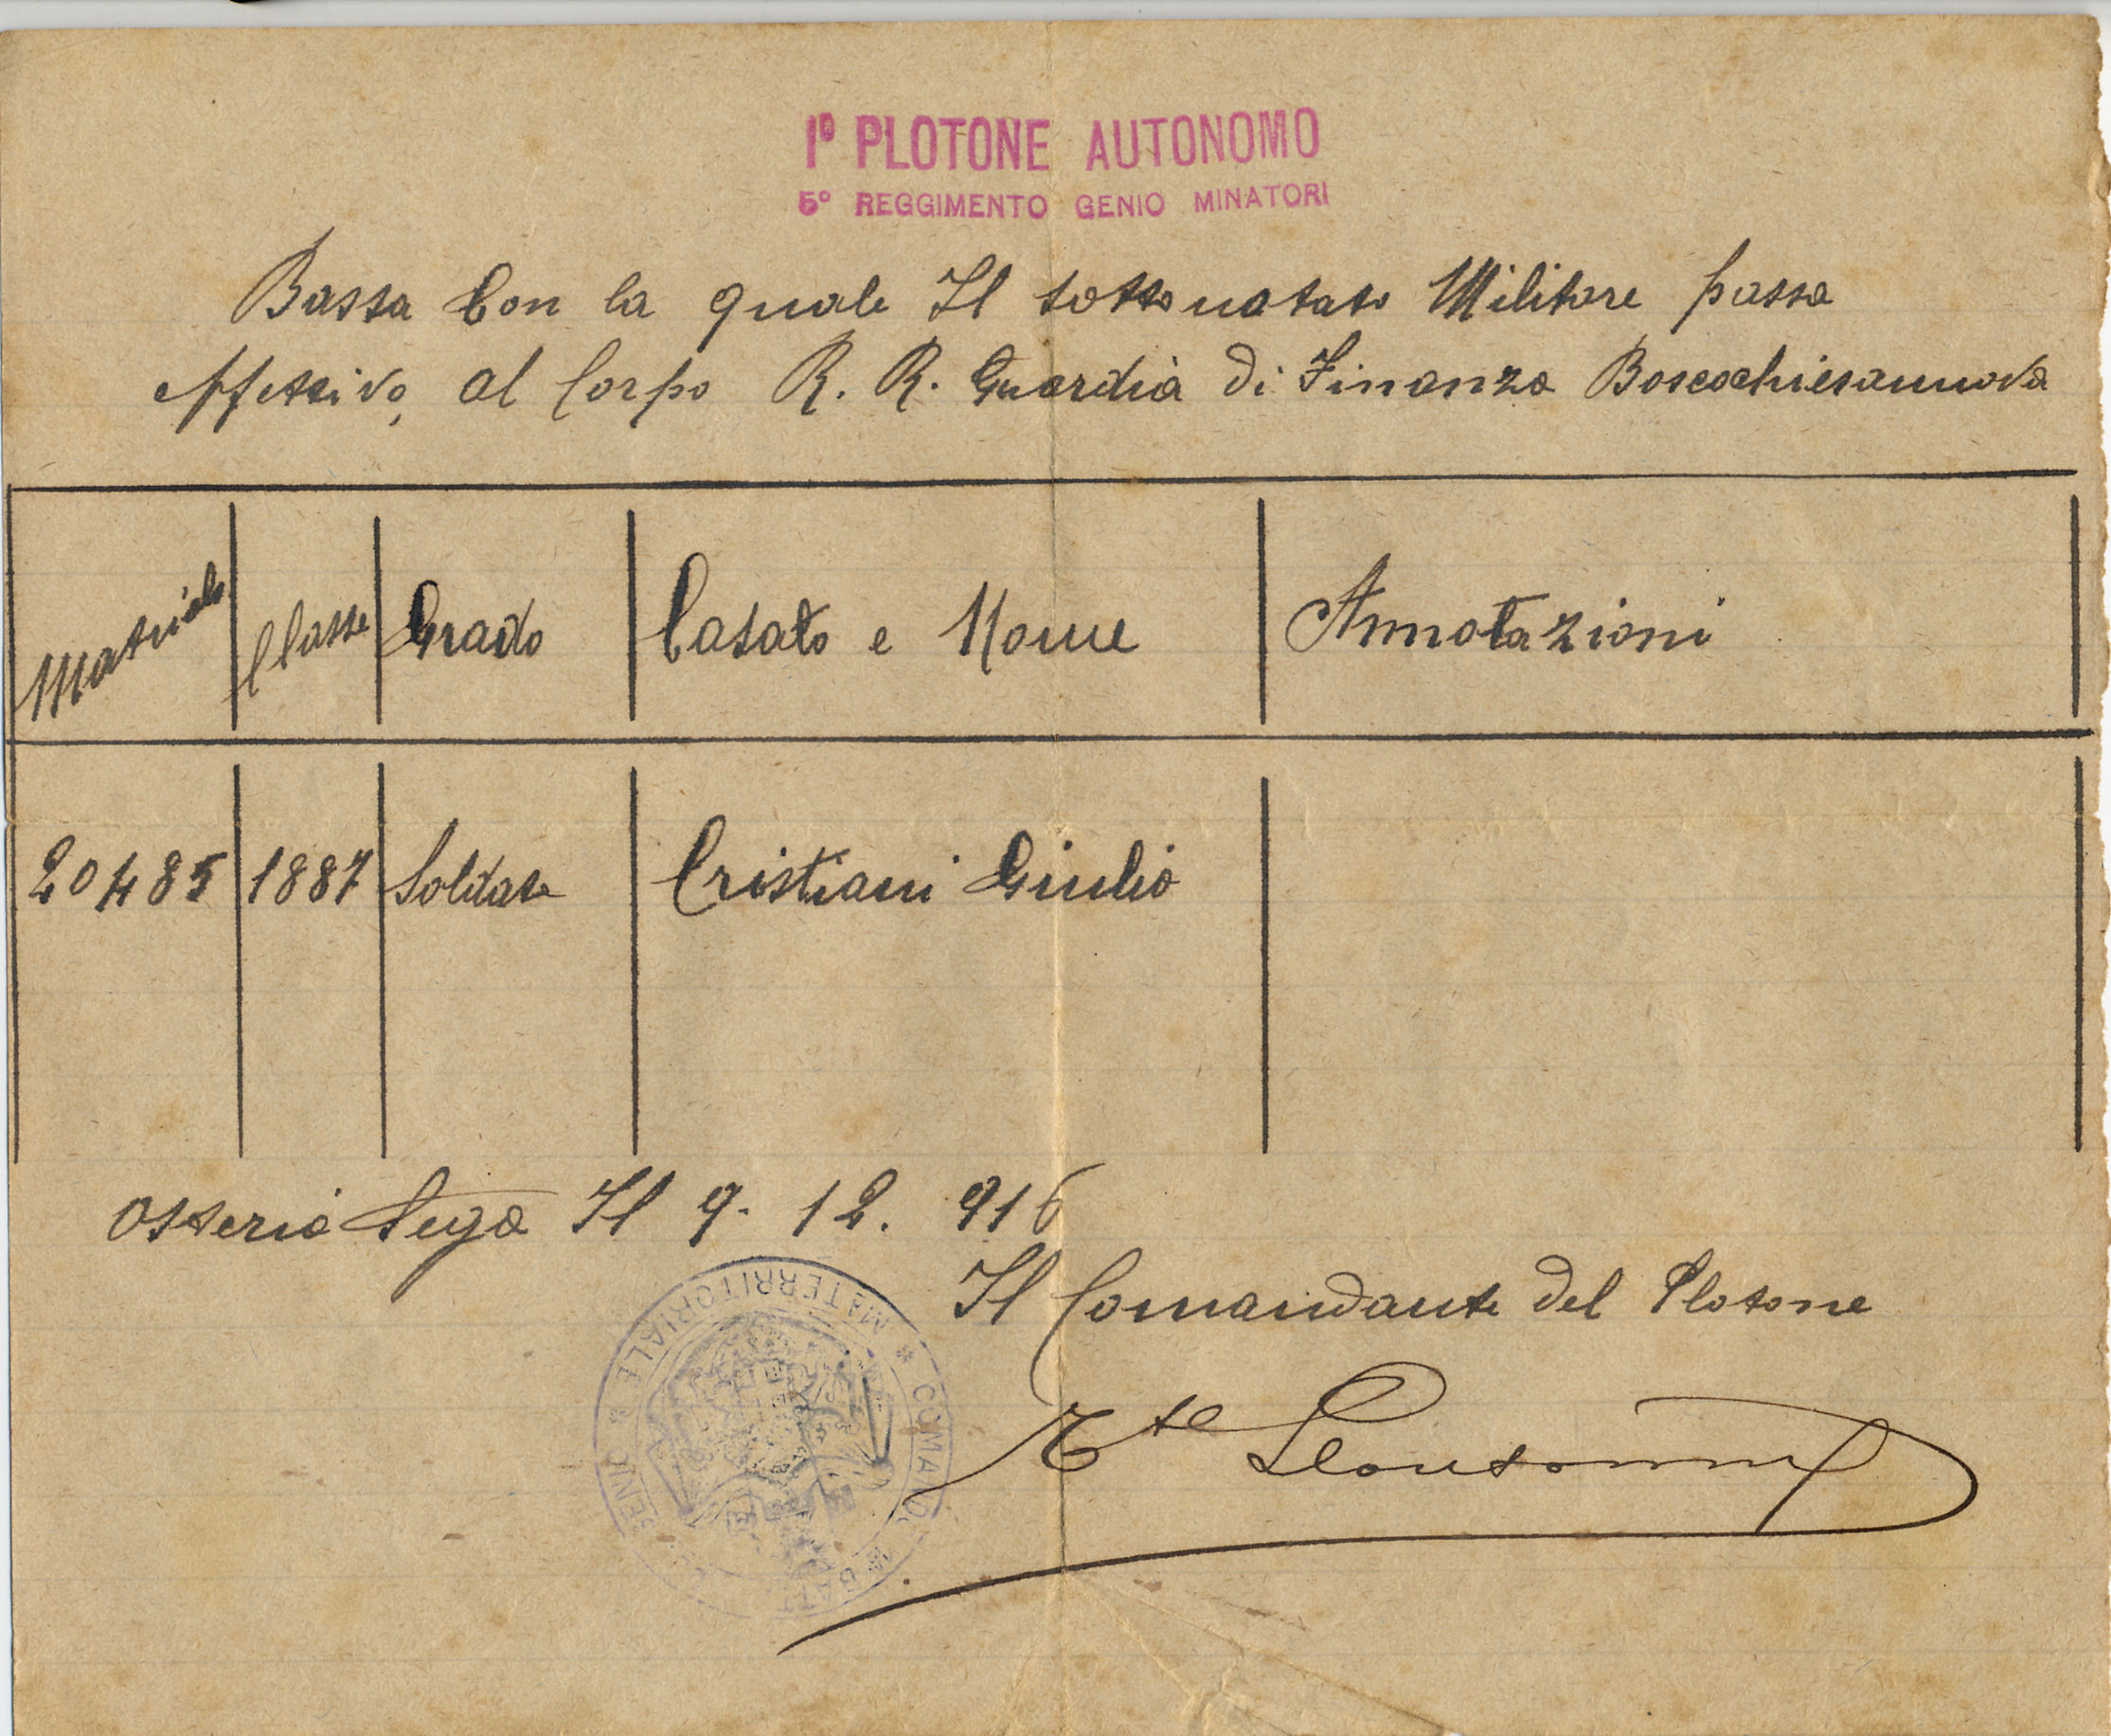 1º PLOTONE AUTONOMO
5º REGGIMENTO GENIO MINATORI
Bassa Con la quale Il sottonotato Militare passa
effettivo, al Corpo R. R. Guardia di Finanza Boscochiesannova
Matricola Classe Grado Casato e Nome Annotazioni
20485 1887 Soldato Cristiani Giulio
Osteria Sega Il 9. 12. 916
Il Comandante del Plotone
Tte
COMANDO * BATT * MATERRITORIALE * GENIO